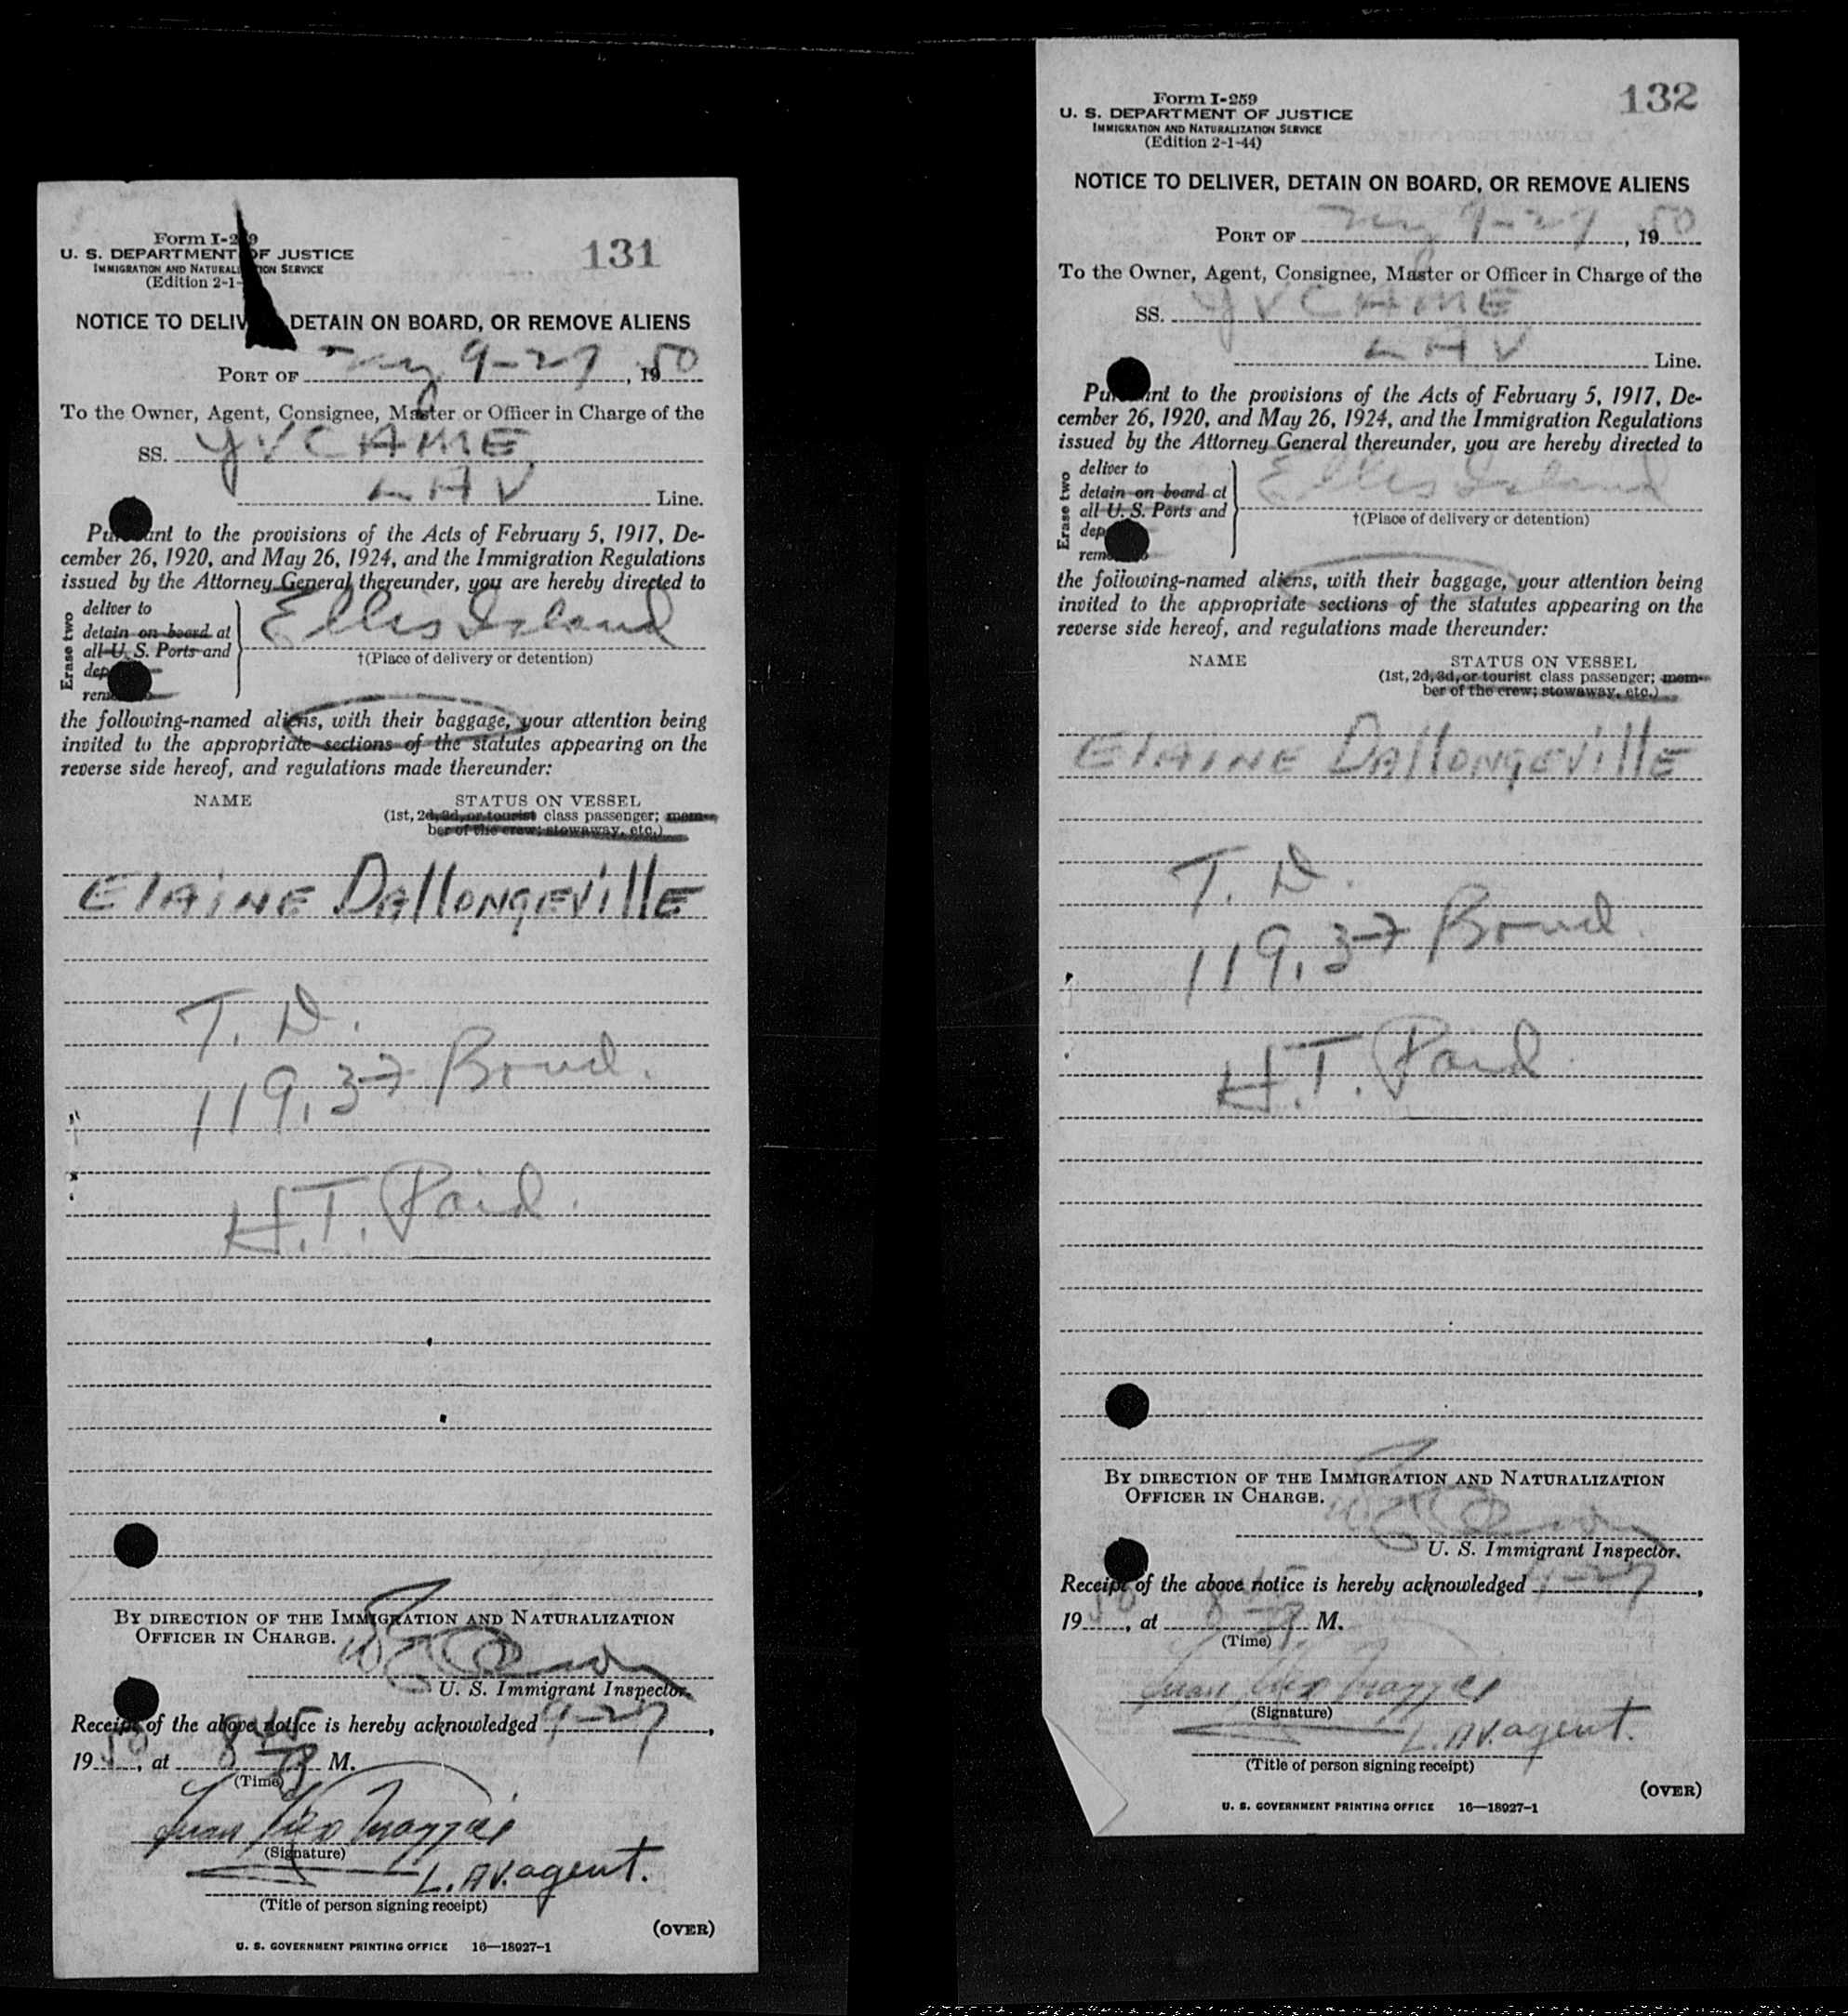 131
Form I-259
U. S. DEPARTMENT OF JUSTICE
IMMIGRATION AND NATURALIZATION SERVICE
(Edition 2-1-
NOTICE TO DELIV DETAIN ON BOARD, OR REMOVE ALIENS
PORT OF ny 9-27, 1950
To the Owner, Agent, Consignee, Master or Officer in Charge of the
SS. YVCAME
LAV Line.
Pursuant to the provisions of the Acts of February 5, 1917, De-
cember 26, 1920, and May 26, 1924, and the Immigration Regulations
issued by the Attorney General thereunder, you are hereby directed to
Erase two
deliver to
detain on board at
all U. S. Ports and
dep
rem
Ellis Island
†(Place of delivery or detention)
the following-named aliens, with their baggage, your attention being
invited to the appropriate sections of the statutes appearing on the
reverse side hereof, and regulations made thereunder:
NAME STATUS ON VESSEL
(1st, 2d, 3d, or tourist class passenger; mem-
ber of the crew; stowaway, etc.)
ElAiNE DAllONgEVillE
T. D.
119.37 Bond.
H.T. Paid.
BY DIRECTION OF THE IMMIGRATION AND NATURALIZATION
OFFICER IN CHARGE.
U. S. Immigrant Inspector.
Receipt of the above notice is hereby acknowledged 9-27,
1950, at 845 M.
(Time)
Juan
(Signature)
L.AV. agent.
(Title of person signing receipt)
(OVER)
U. S. GOVERNMENT PRINTING OFFICE 16—18027-1
132
Form I-259
U. S. DEPARTMENT OF JUSTICE
IMMIGRATION AND NATURALIZATION SERVICE
(Edition 2-1-44)
NOTICE TO DELIVER, DETAIN ON BOARD, OR REMOVE ALIENS
PORT OF ny 9-27, 1950
To the Owner, Agent, Consignee, Master or Officer in Charge of the
SS. YVCAME
LAV Line.
Pursuant to the provisions of the Acts of February 5, 1917, De-
cember 26, 1920, and May 26, 1924, and the Immigration Regulations
issued by the Attorney General thereunder, you are hereby directed to
Erase two
deliver to
detain on board at
all U. S. Ports and
dep
rem
Ellis Island
†(Place of delivery or detention)
the following-named aliens, with their baggage, your attention being
invited to the appropriate sections of the statutes appearing on the
reverse side hereof, and regulations made thereunder:
NAME STATUS ON VESSEL
(1st, 2d, 3d, or tourist class passenger; mem-
ber of the crew; stowaway, etc.)
ElAiNE DAllONgEVillE
T. D.
119.37 Bond.
H.T. Paid
BY DIRECTION OF THE IMMIGRATION AND NATURALIZATION
OFFICER IN CHARGE.
U. S. Immigrant Inspector.
Receipt of the above notice is hereby acknowledged 9-27,
1950, at 845 M.
(Time)
Juan
(Signature)
L.AV. agent.
(Title of person signing receipt)
(OVER)
U. S. GOVERNMENT PRINTING OFFICE 16—18927-1